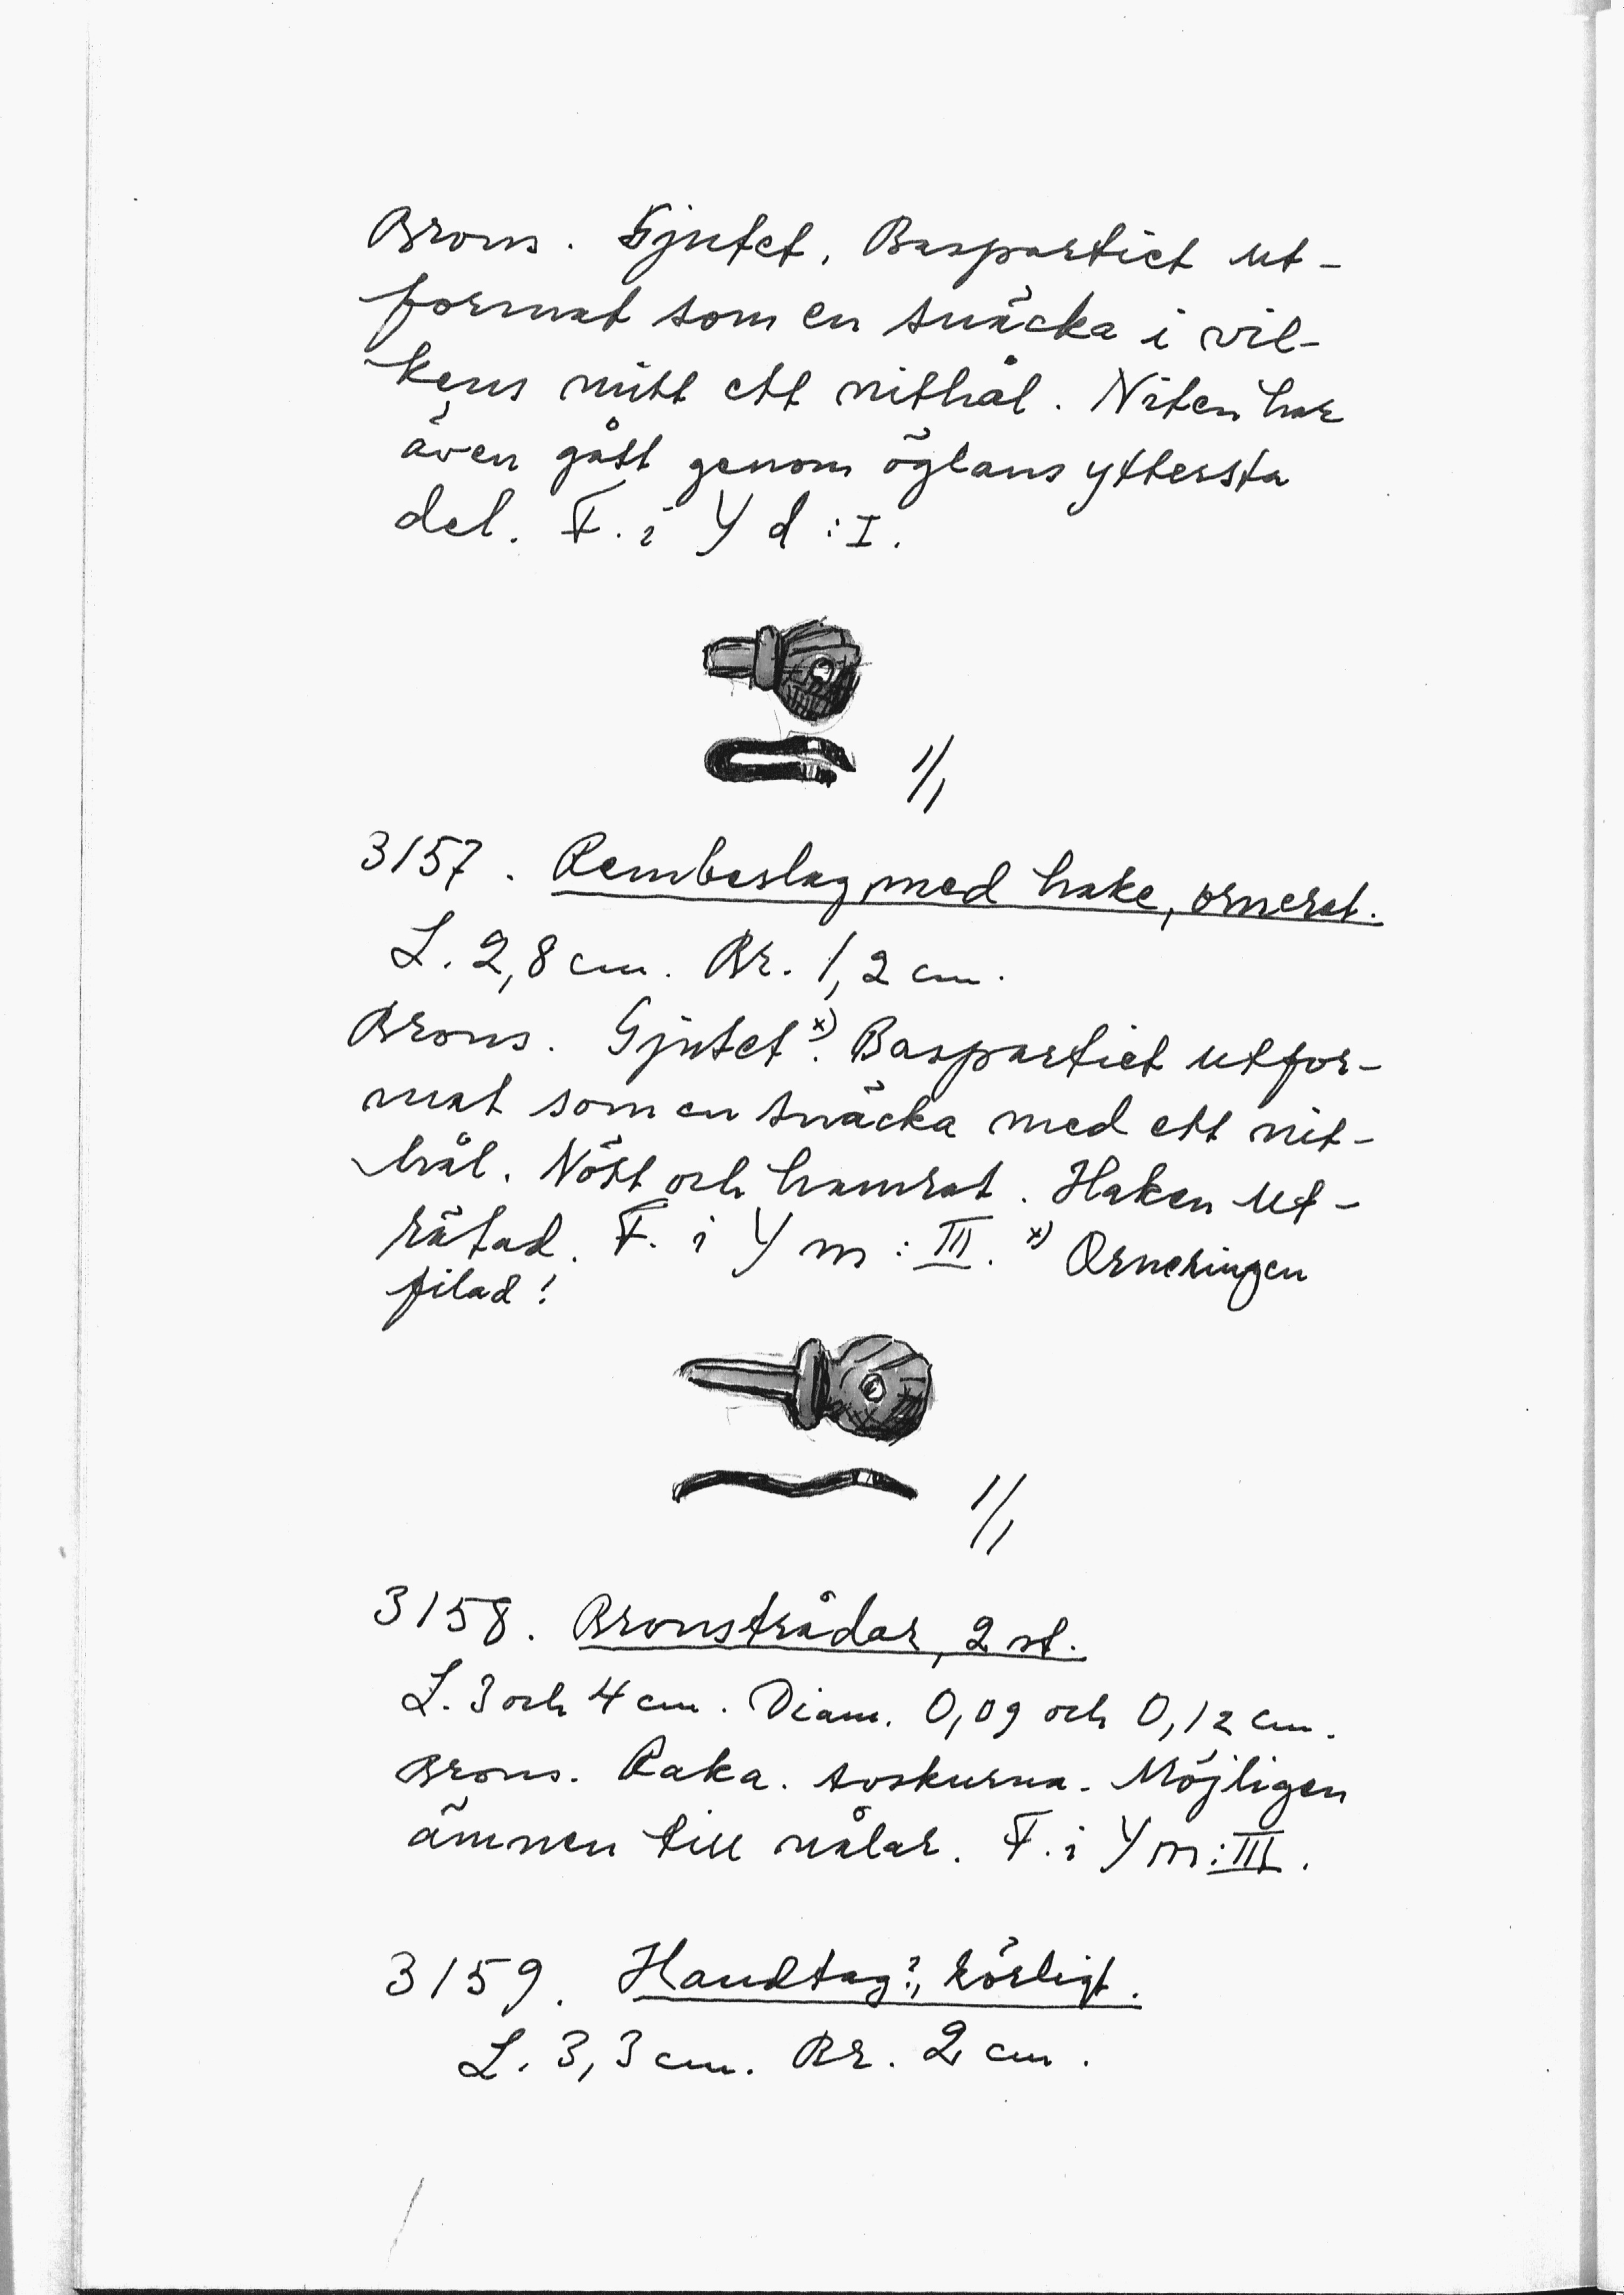 Brons. Gjutet, Baspartiet ut-
format som en snäcka i vil-
kens mitt ett nithål. Niten har
även gått genom öglans yttersta
del. F. i Y d : I.
1/1
3157. Rembeslag med hake, ornerat.
L. 2,8 cm. Br. 1,2 cm.
Brons. Gjutet x). Baspartiet utfor-
mat som en snäcka med ett nit-
hål. Nött och hamrat. Haken ut-
rätad. F. i Y m : III. x) Orneringen
filad!
1/1
3158. Bronstrådar, 2 st.
L. 3 och 4 cm. Diam. 0,09 och 0,12 cm.
Brons. Raka. avskurna. Möjligen
ämnen till nålar. F. i Y m : III.
3159. Handtag?, rörligt.
L. 3,3 cm. Br. 2 cm.